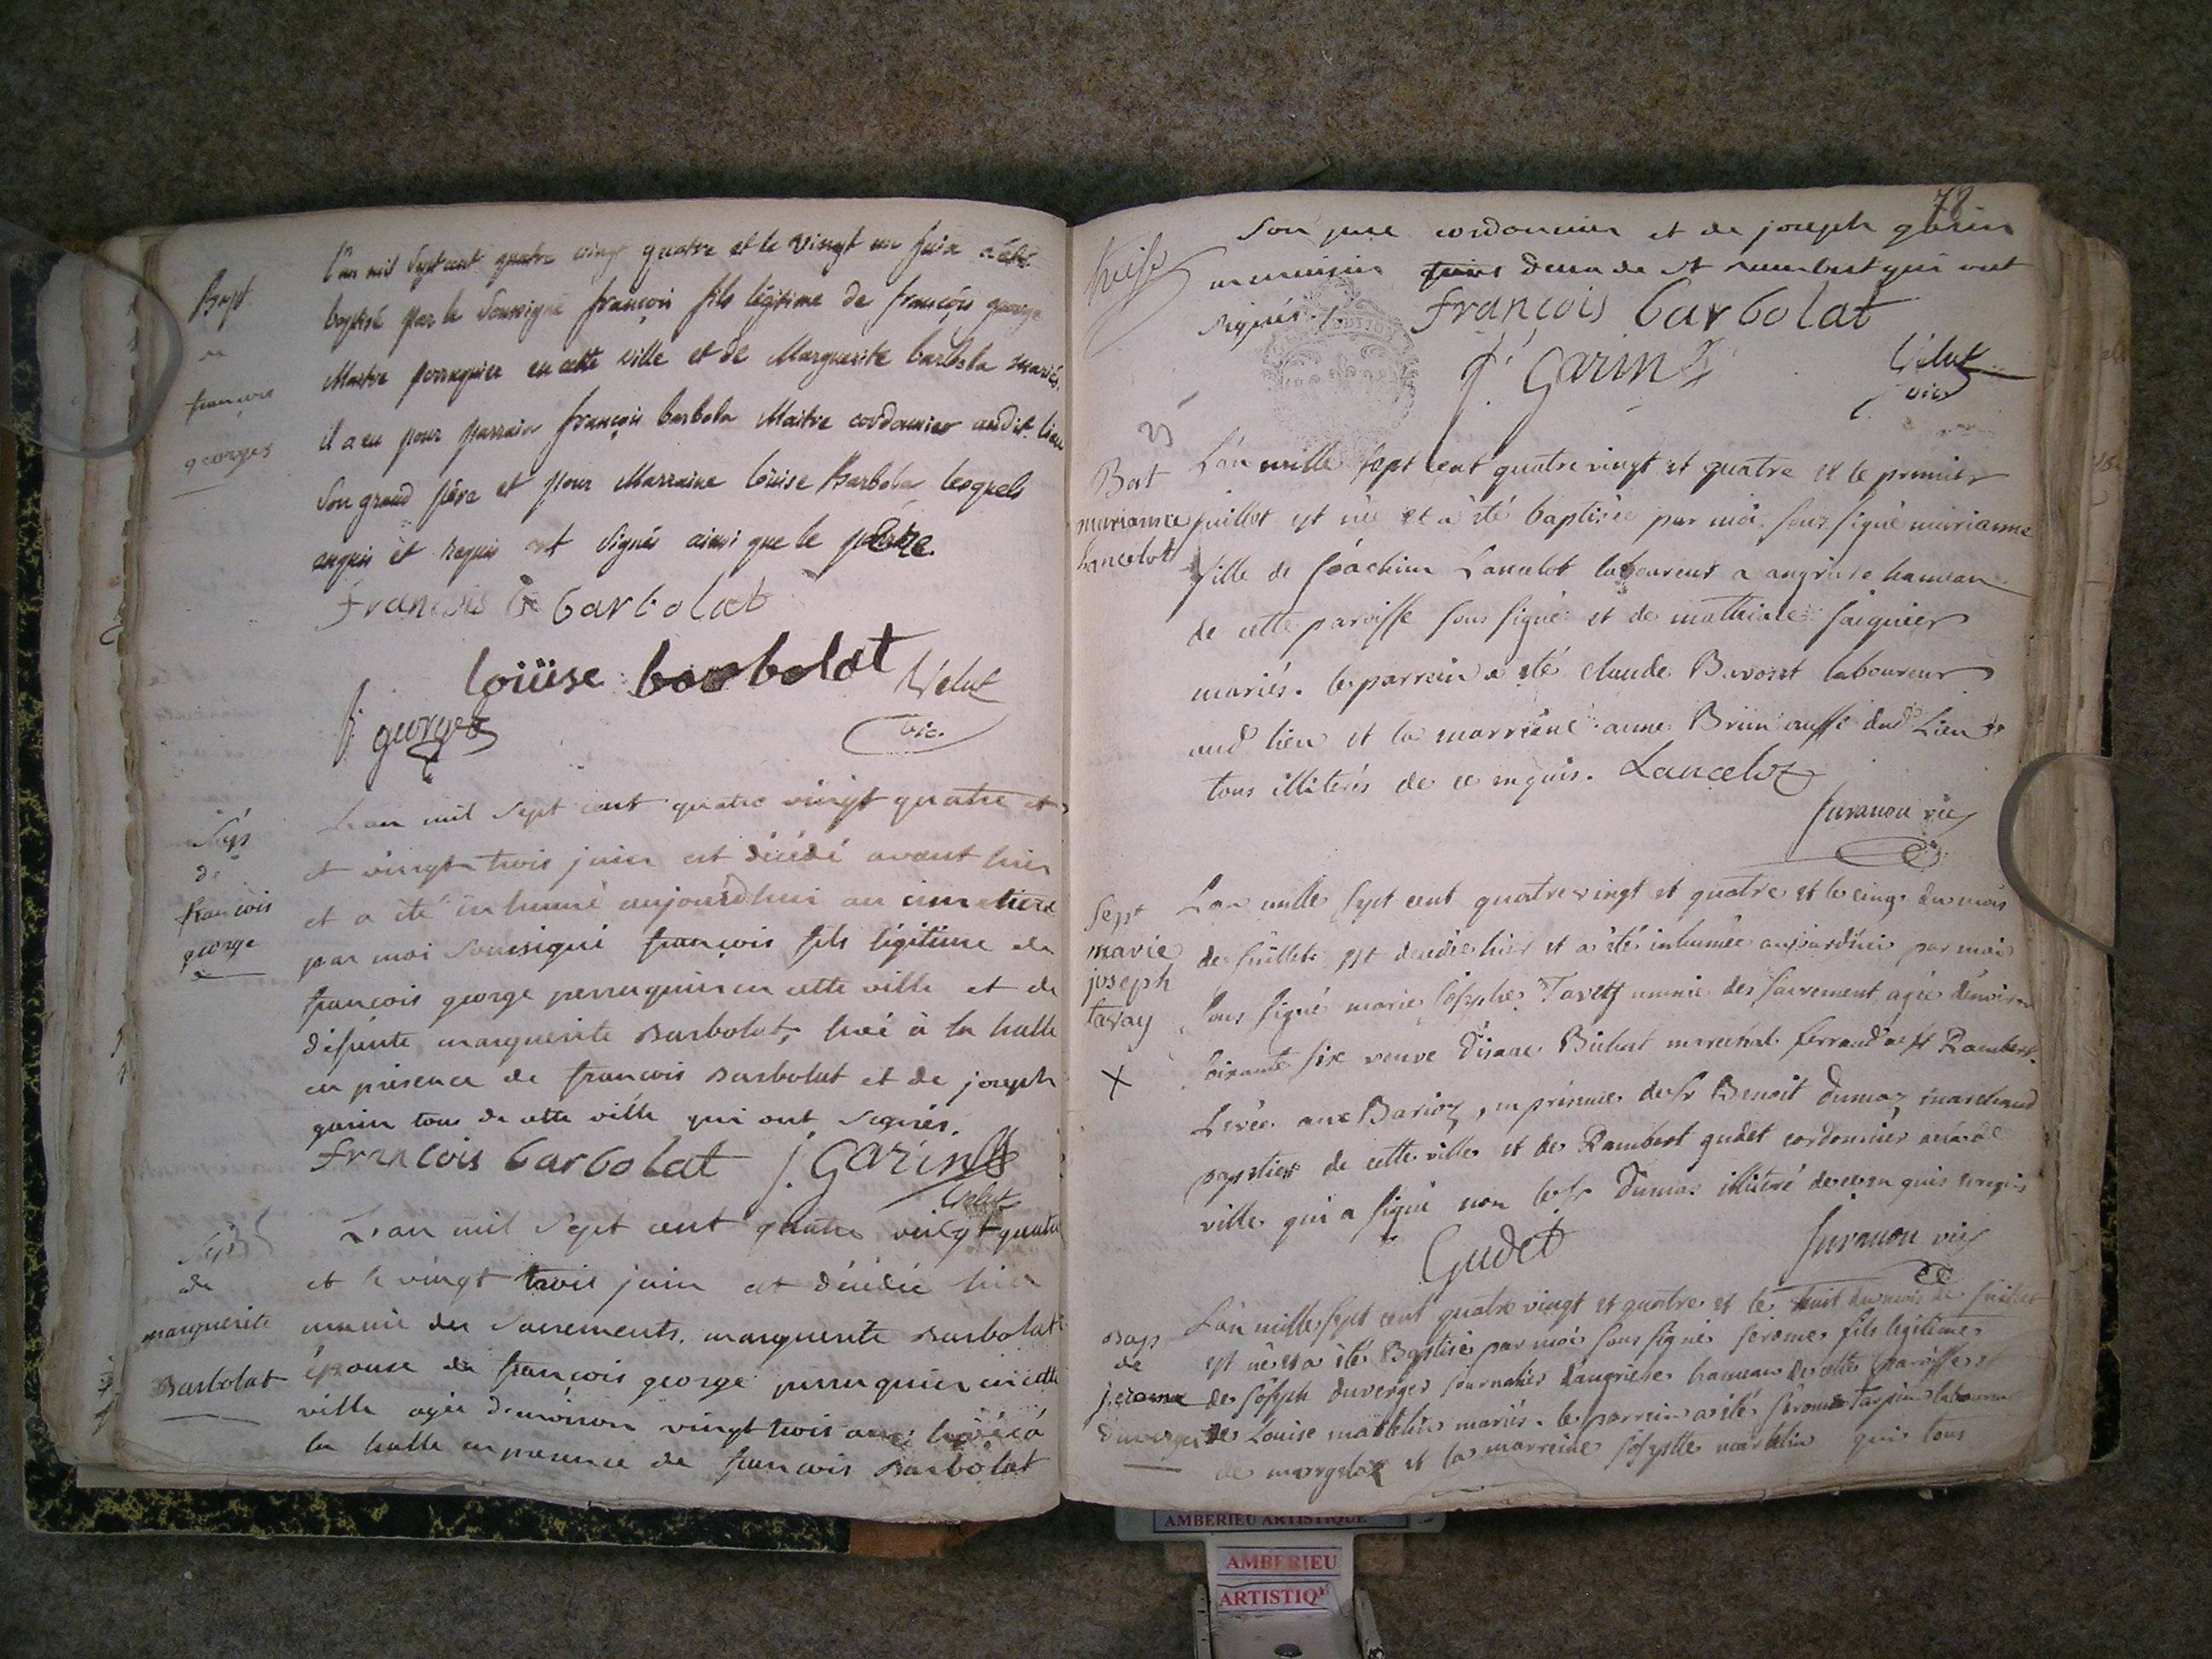 Bapt
de
francois
georges
l'an mil sept cent quatre vingt quatre et le vingt un juin a été
baptisé par le soussigné françois fils légitime de françois george
Maitre perruquier en cette ville et de Marguerite barbola mariés.
il a eu pour parrain françois barbola Maitre cordonnier audit lieu
son grand père et pour Marraine loüise Barbola lesquels
enquis et requis ont signés ainsi que le père.
francois barbolat
loüise barbolat
Velut
f. george
vic.
Sep
de
francois
george
L'an mil sept cent quatre vingt quatre et
et vingt trois juin est décédé avant hier
et a été inhumé aujourdhui au cimetiere
par moi soussigné françois fils légitime de
françois george perruquier en cette ville et de
défunte marguerite Barbolat, levé à la halle
en présence de françois Barbolat et de joseph
garin tous de cette ville qui ont signés.
francois barbolat j. Garin
Velut
Sep
de
marguerite
Barbolat
L'an mil sept cent quatre vingt quatre
et le vingt trois juin est décédée hier
munie des sacrements, marguerite Barbolat
épouse de françois george perruquier en cette
ville agée d'environ vingt trois ans levée à
la halle en présence de françois Barbolat
78
son pere cordonnier et de joseph garin
menuisier tous deux de St rambert qui ont
signés.
françois barbolat
J. Garin
Velut
vic
Bat
marianne
Lancelot
L'an mille sept cent quatre vingt et quatre et le premier
juillet est née et a été baptisée par moi sous signé marianne
fille de Joachim Lancelot laboureur a angriere hameau
de cette paroisse sous signé et de mathiale
mariés. le parrain a été claude laboureur
aud lieu et la marraine anne Brun aussi dud Lieu
tous illiterés de ce enquis. Lancelot
Juvanon vic
Sept
marie
joseph
tavay
L'an mille sept cent quatre vingt et quatre et le cinq du mois
de Juillet est decedée hier et a été inhumée aujourd'hui par moi
sous signé marie Josephe Tavey munie des sacrement agée d'environ
soixante six veuve marechal ferrand a St Rambert.
Levée aux Barioz, en présence de Sr Benoit Dumaz marchand
papetier de cette ville et de Rambert gudet cordonnier
ville qui a signé non le Sr Dumas illitéré de ce enquis et requis
Gudet
Juvanon vic
Bap
de
jerome
Duverger
L'an mille sept cent quatre vingt et quatre et le huit du mois de Juillet
est né et a été Baptisé par moi sous signé Jérome fils legitime
de Joseph Duverger journalier d'angriere hameau de cette paroisse
de Louise martelin mariés. le parrain a été Jérome Tarpin laboureur
de morgelas et la marreine Josephte martelin qui tous
AMBERIEU ARTISTIQUE
AMBERIEU
ARTISTIQ